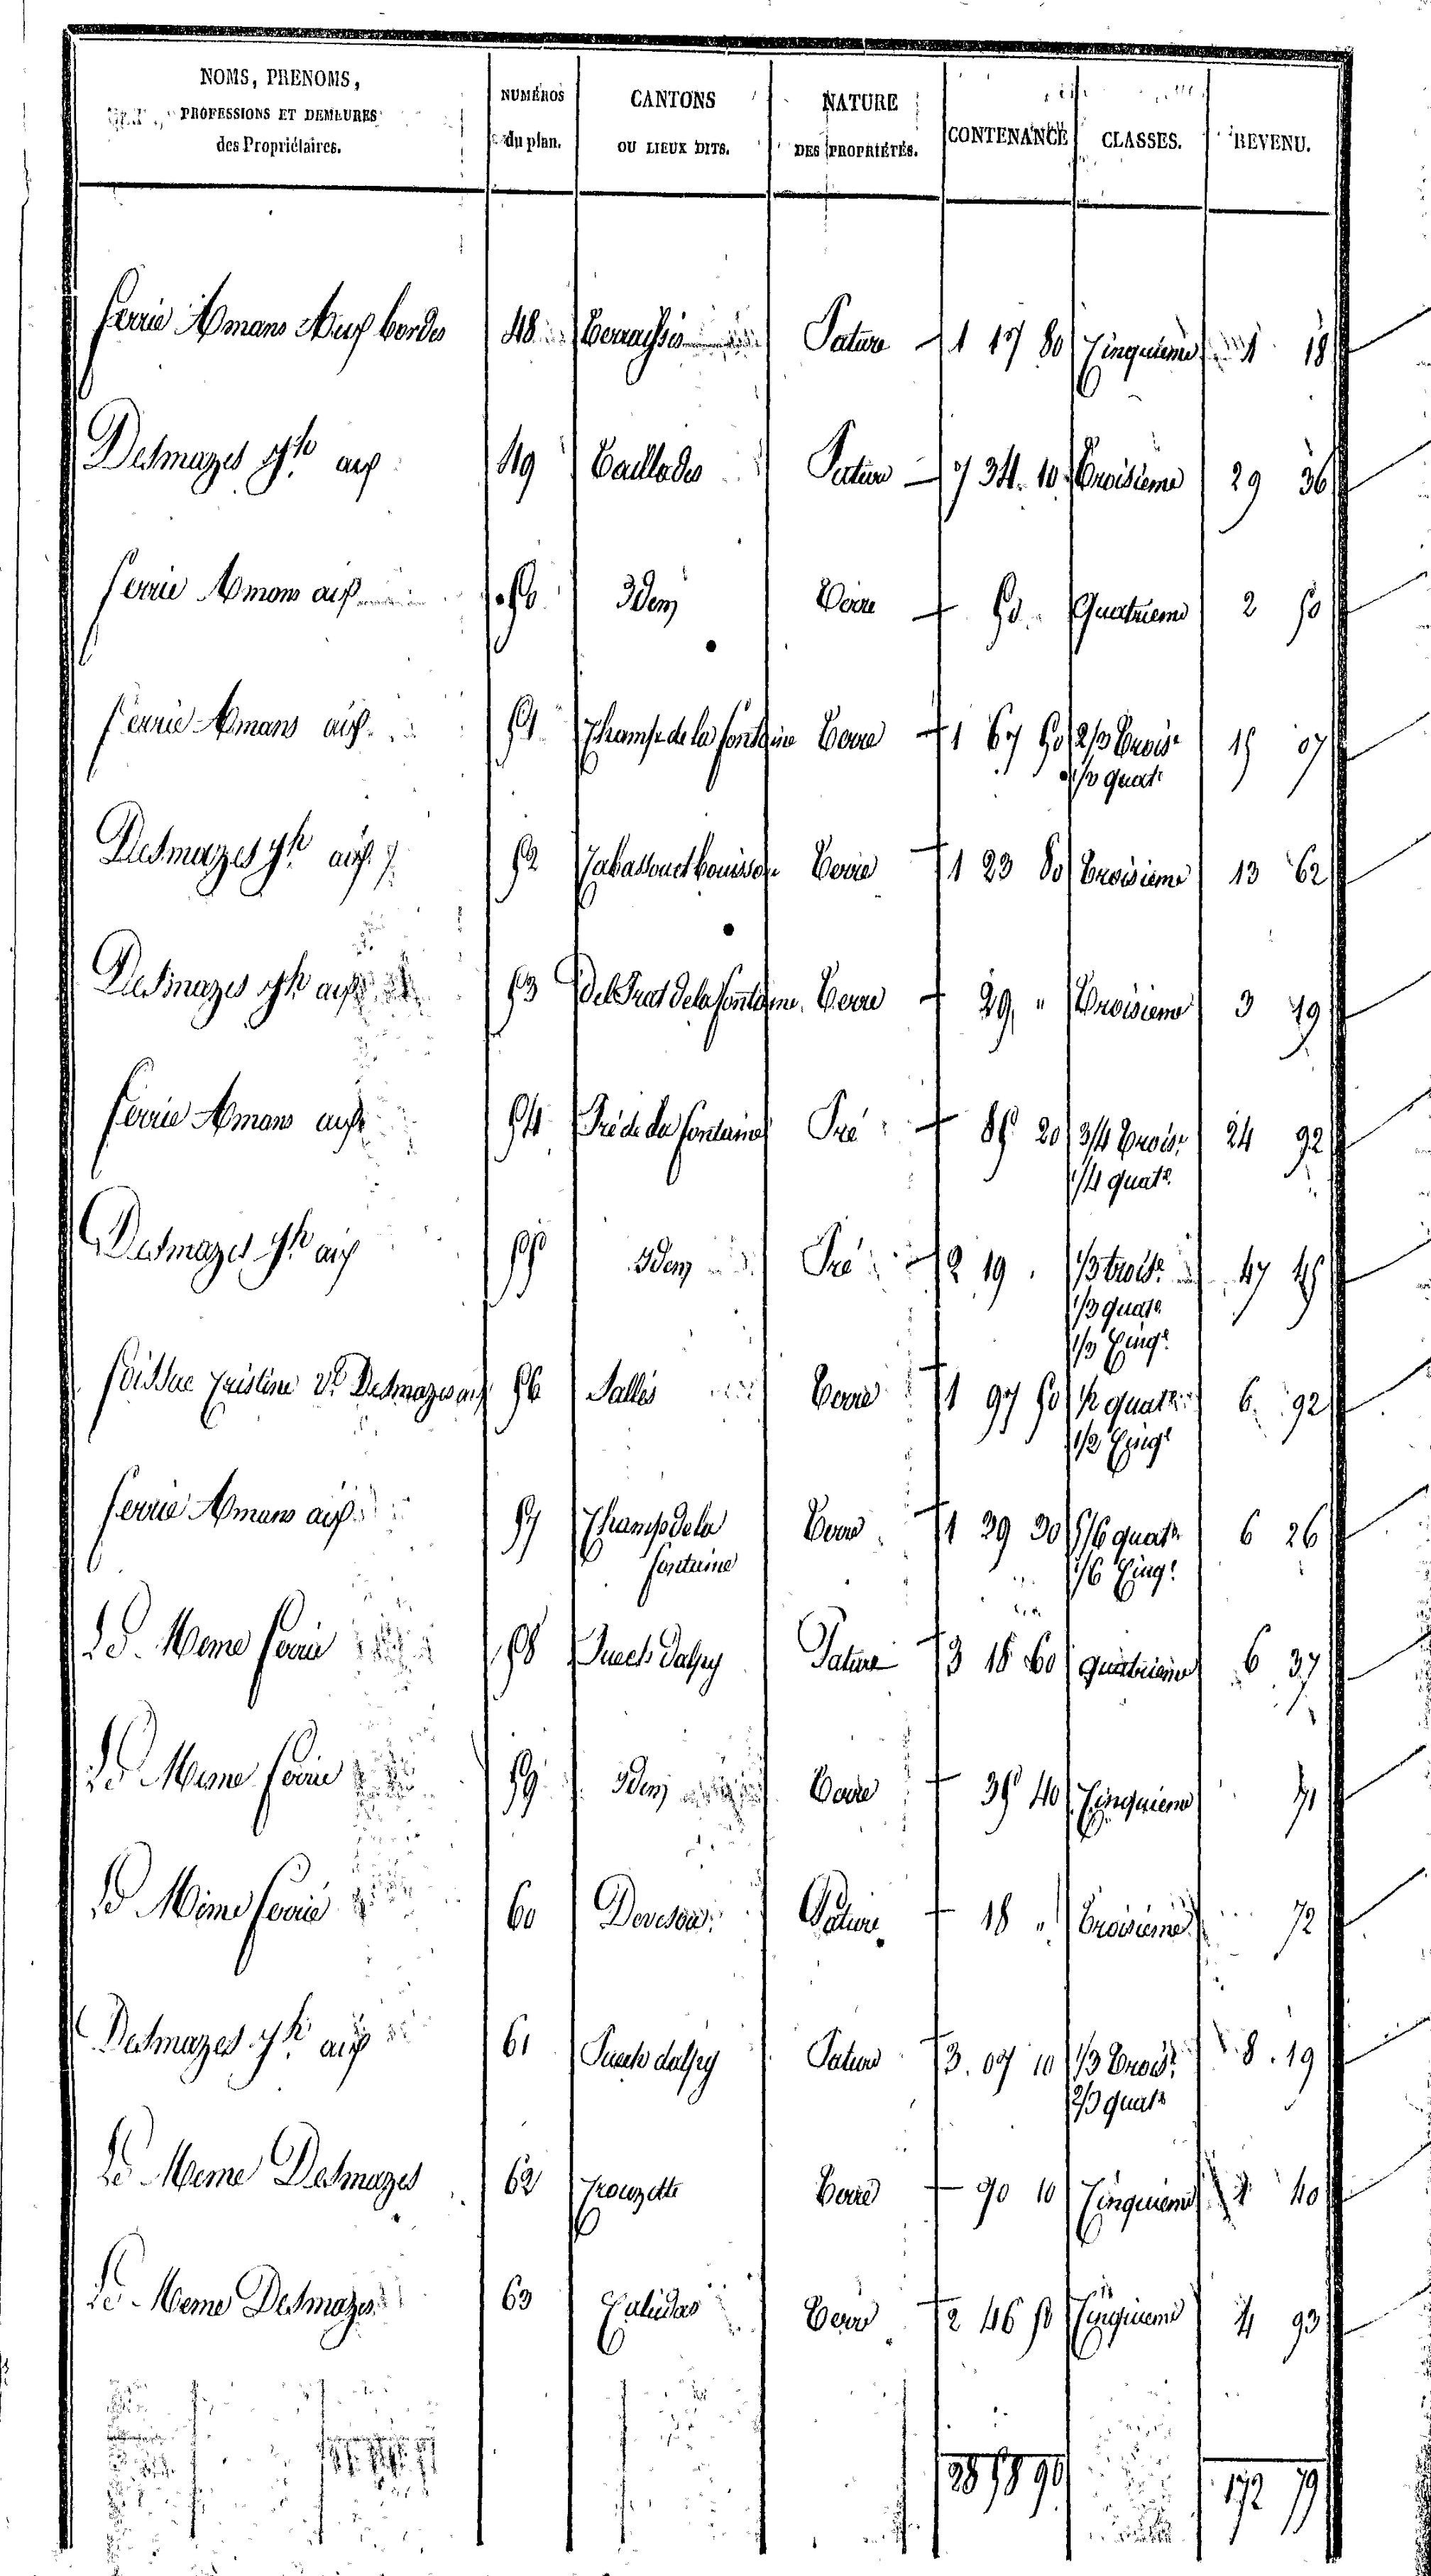 NOMS, PRENOMS,
PROFESSIONS ET DEMEURES
des Propriétaires.
NUMÉROS
du plan.
CANTONS
OU LIEUX DITS.
NATURE
DES PROPRIÉTÉS.
CONTENANCE
CLASSES.
REVENU.
ferrie Amans bordes 48 Pature 1 17 80 Cinquieme 1 18
Delmazes jh aux 49 Caillades Pature 7 34 10 Troisieme 29 36
ferrie Amans aux 50 Idem Terre 50 Quatrieme 2 50
ferrie Amans aux 51 Champ de la fontaine Terre 1 67 50 2/3 troise 15 07
1/3 quate
Delmazes jh aux 52 Terre 1 23 80 Troisieme 13 62
Delmazes jh aux 53 Del Prat de la fontaine Terre 29 " Troisieme 3 19
ferrie Amans aux 54 Pré de la fontaine Pré 85 20 3/4 trois. 24 92
1/4 quate
Delmazes jh aux 55 Idem Pré 2 19 1/3 trois. 47 45
1/3 quate
1/3 Cinq.
Cristine Ve Delmazes aux 56 Salles Terre 1 97 50 1/2 quate 6 92
1/2 Cinqe
ferrie Amans aux 57 Champ de la Terre 1 29 30 5/6 quate 6 26
fontaine 1/6 Cinq.
Le Meme ferrie 58 Puech Dalpy Pature 3 18 60 quatrieme 6 37
Le Meme ferrie 59 Idem Terre 35 40 Cinquieme 71
Le Meme ferrie 60 Pature 18 " Troisieme 72
Delmazes jh aux 61 Puech dalpy Pature 3. 07 10 1/3 trois. 8. 19
2/3 quate
Le Meme Delmazes 62 Crouzette Terre 90 10 Cinquieme 40
Le Meme Delmazes 63 Terre 2 46 50 Cinquieme 4 93
28 58 90 172 79